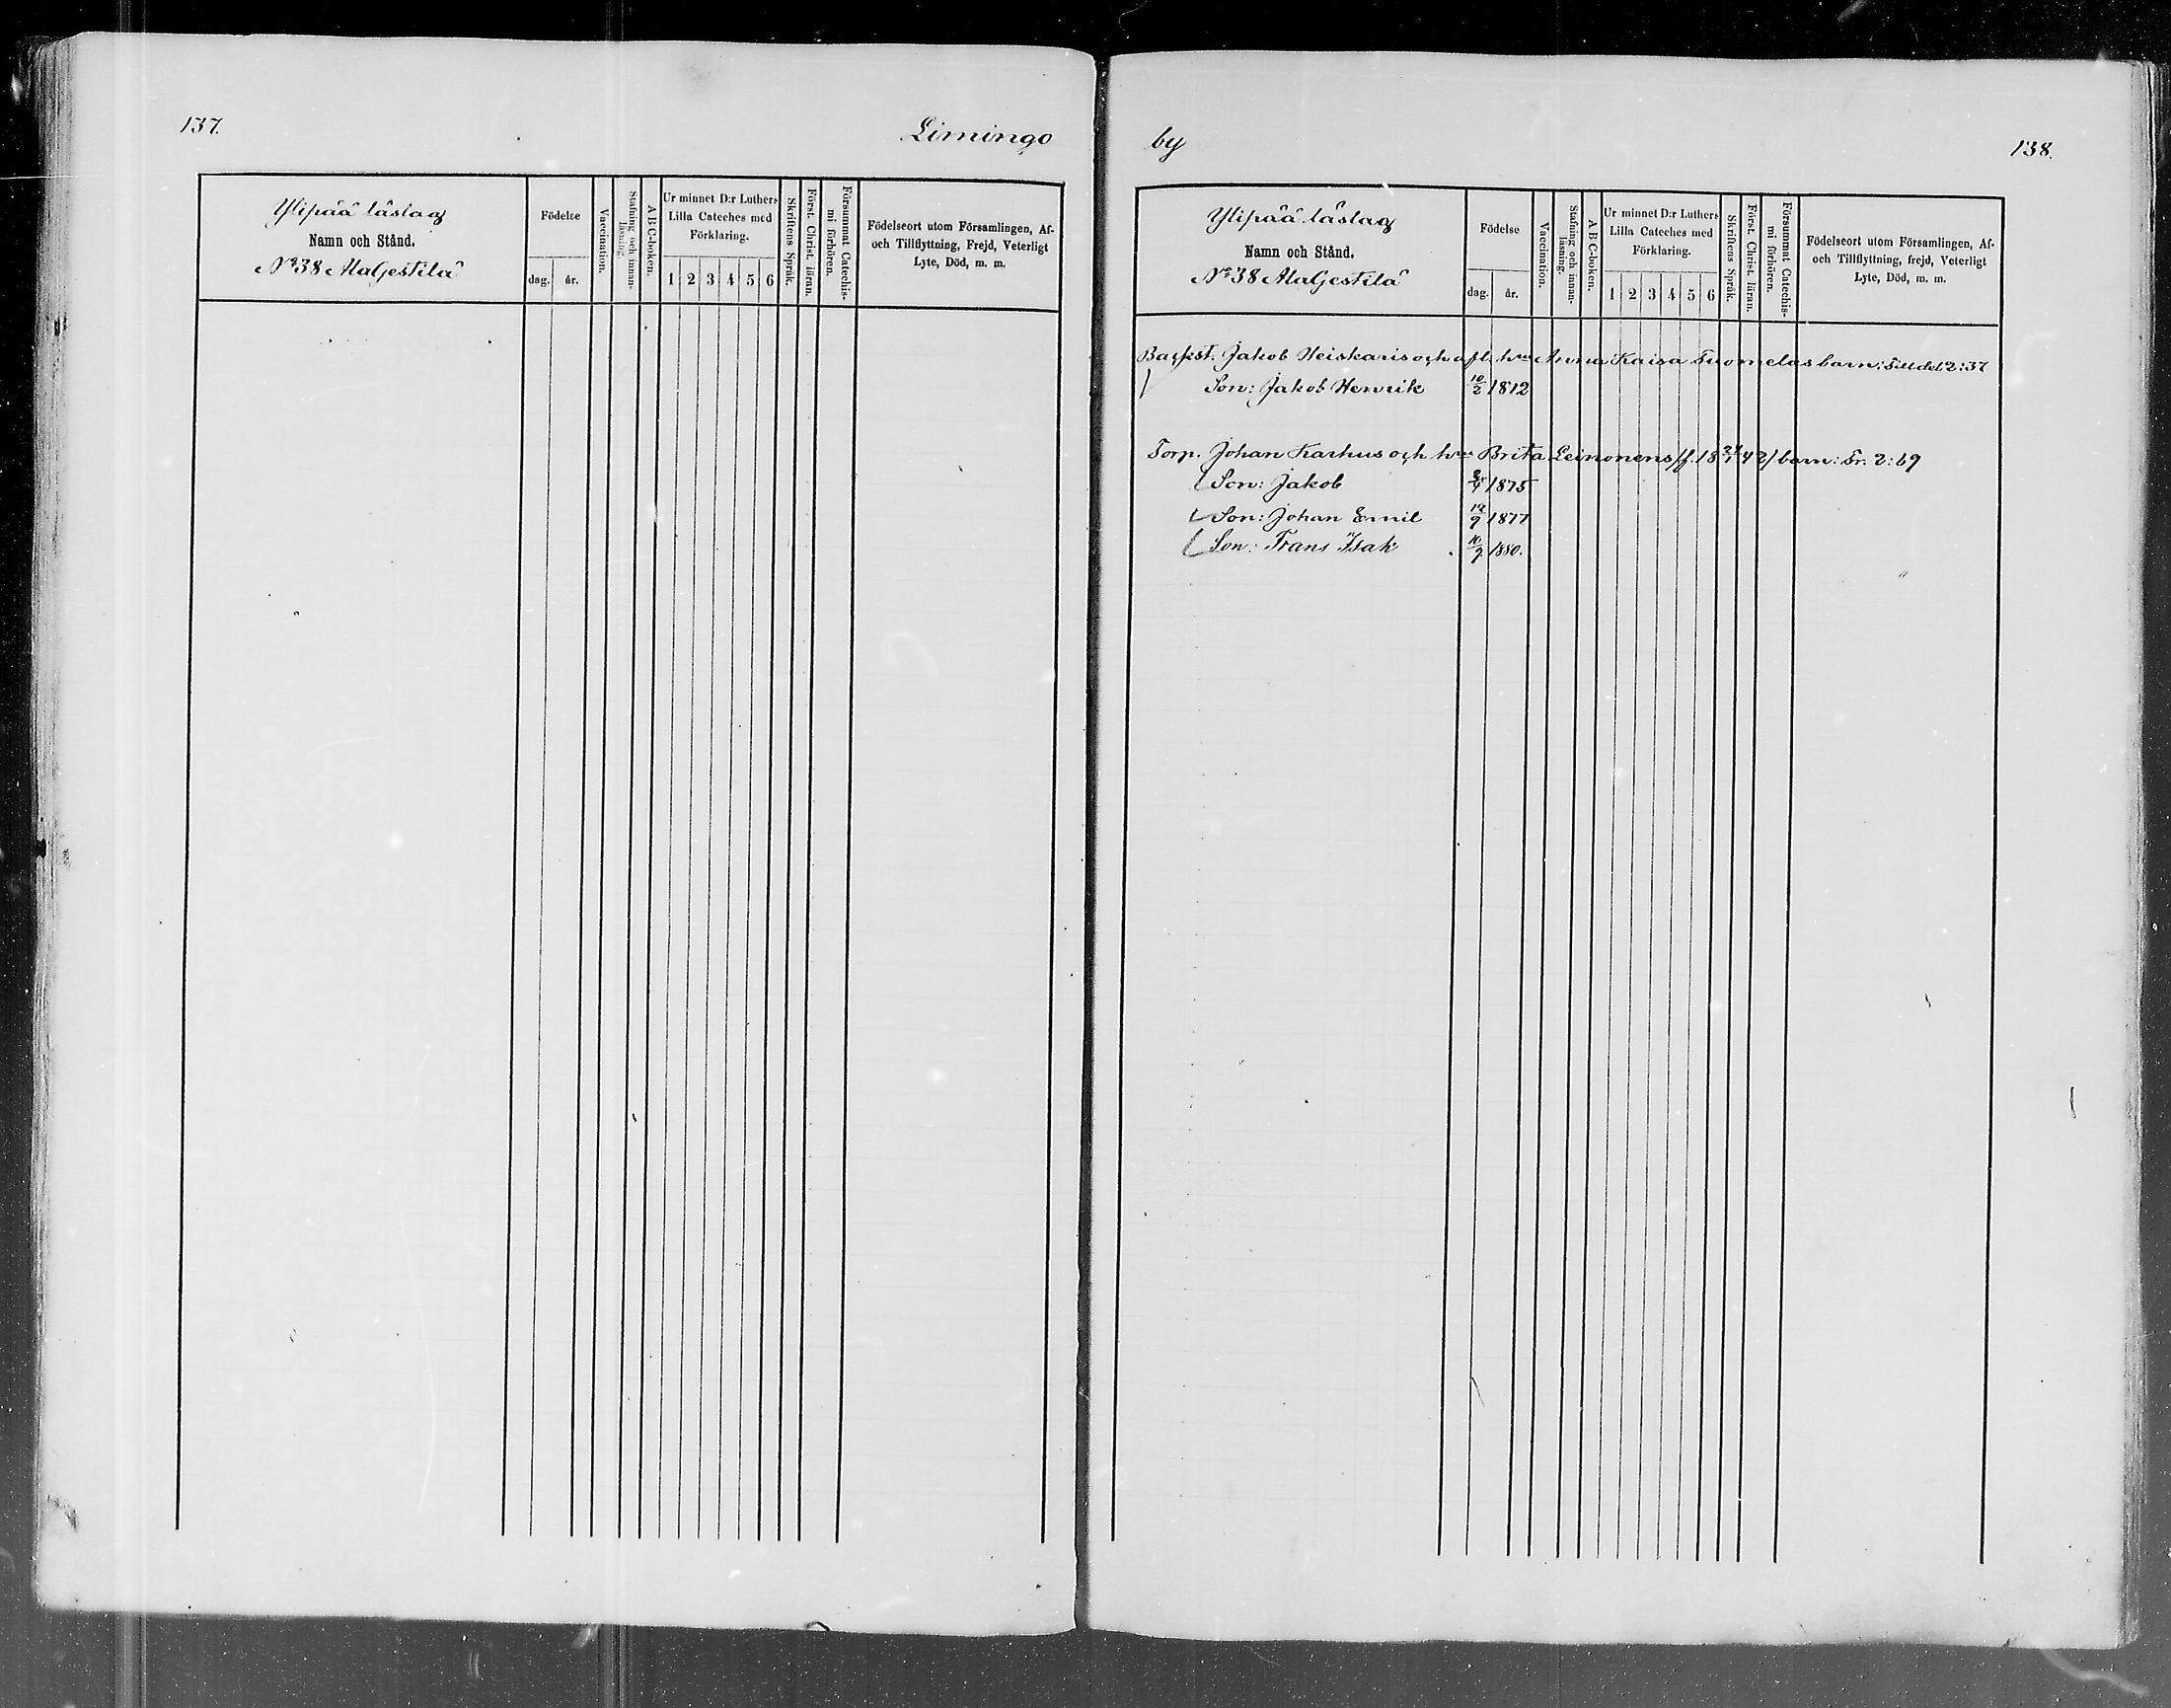 137.
Limingo
Ylipää läslag
Namn och Stånd.
No 38 AlaGestilä
Födelse
dag.
år.
Vaccination.
Stafning och innan-
läsning.
A B C-boken.
Ur minnet D:r Luthers
Lilla Cateches med
Förklaring.
1 2 3 4 5 6
Skriftens Språk.
Först. Christ. läran.
Försummat Catechis-
mi förhören.
Födelseort utom Församlingen, Af-
och Tillflyttning, Frejd, Veterligt
Lyte, Död, m. m.
by
138.
Ylipää läslag
Namn och Stånd.
No 38 AlaGestilä
Födelse
dag.
år.
Vaccination.
Stafning och innan-
läsning.
A B C-boken.
Ur minnet D:r Luthers
Lilla Cateches med
Förklaring.
1 2 3 4 5 6
Skriftens Språk.
Först. Christ. läran.
Försummat Catechis-
mi förhören.
Födelseort utom Församlingen, Af-
och Tillflyttning, frejd, Veterligt
Lyte, Död, m. m.
Backst. Jakob Heiskaris och afl. hru Anna Kaisa Tuomelas barn: Till del. 2:37
Son: Jakob Henrik 10/2 1872
Torp. Johan Karhus och hru Brita Leinonens barn: Tr. 2:69
Son: Jakob 1875
Son: Johan Emil 1877
Son: Frans Isak 10/9 1880.